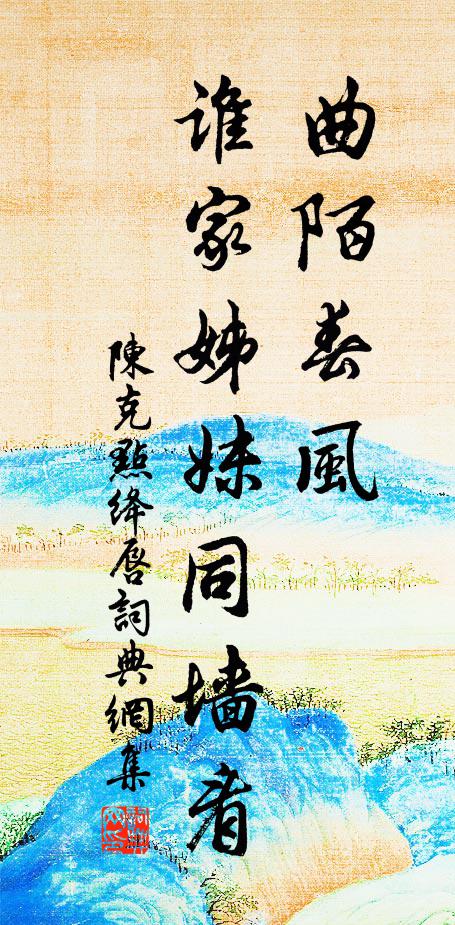 曲陌春風
誰家姊妹同墻看
陳克點绛唇詞典網集